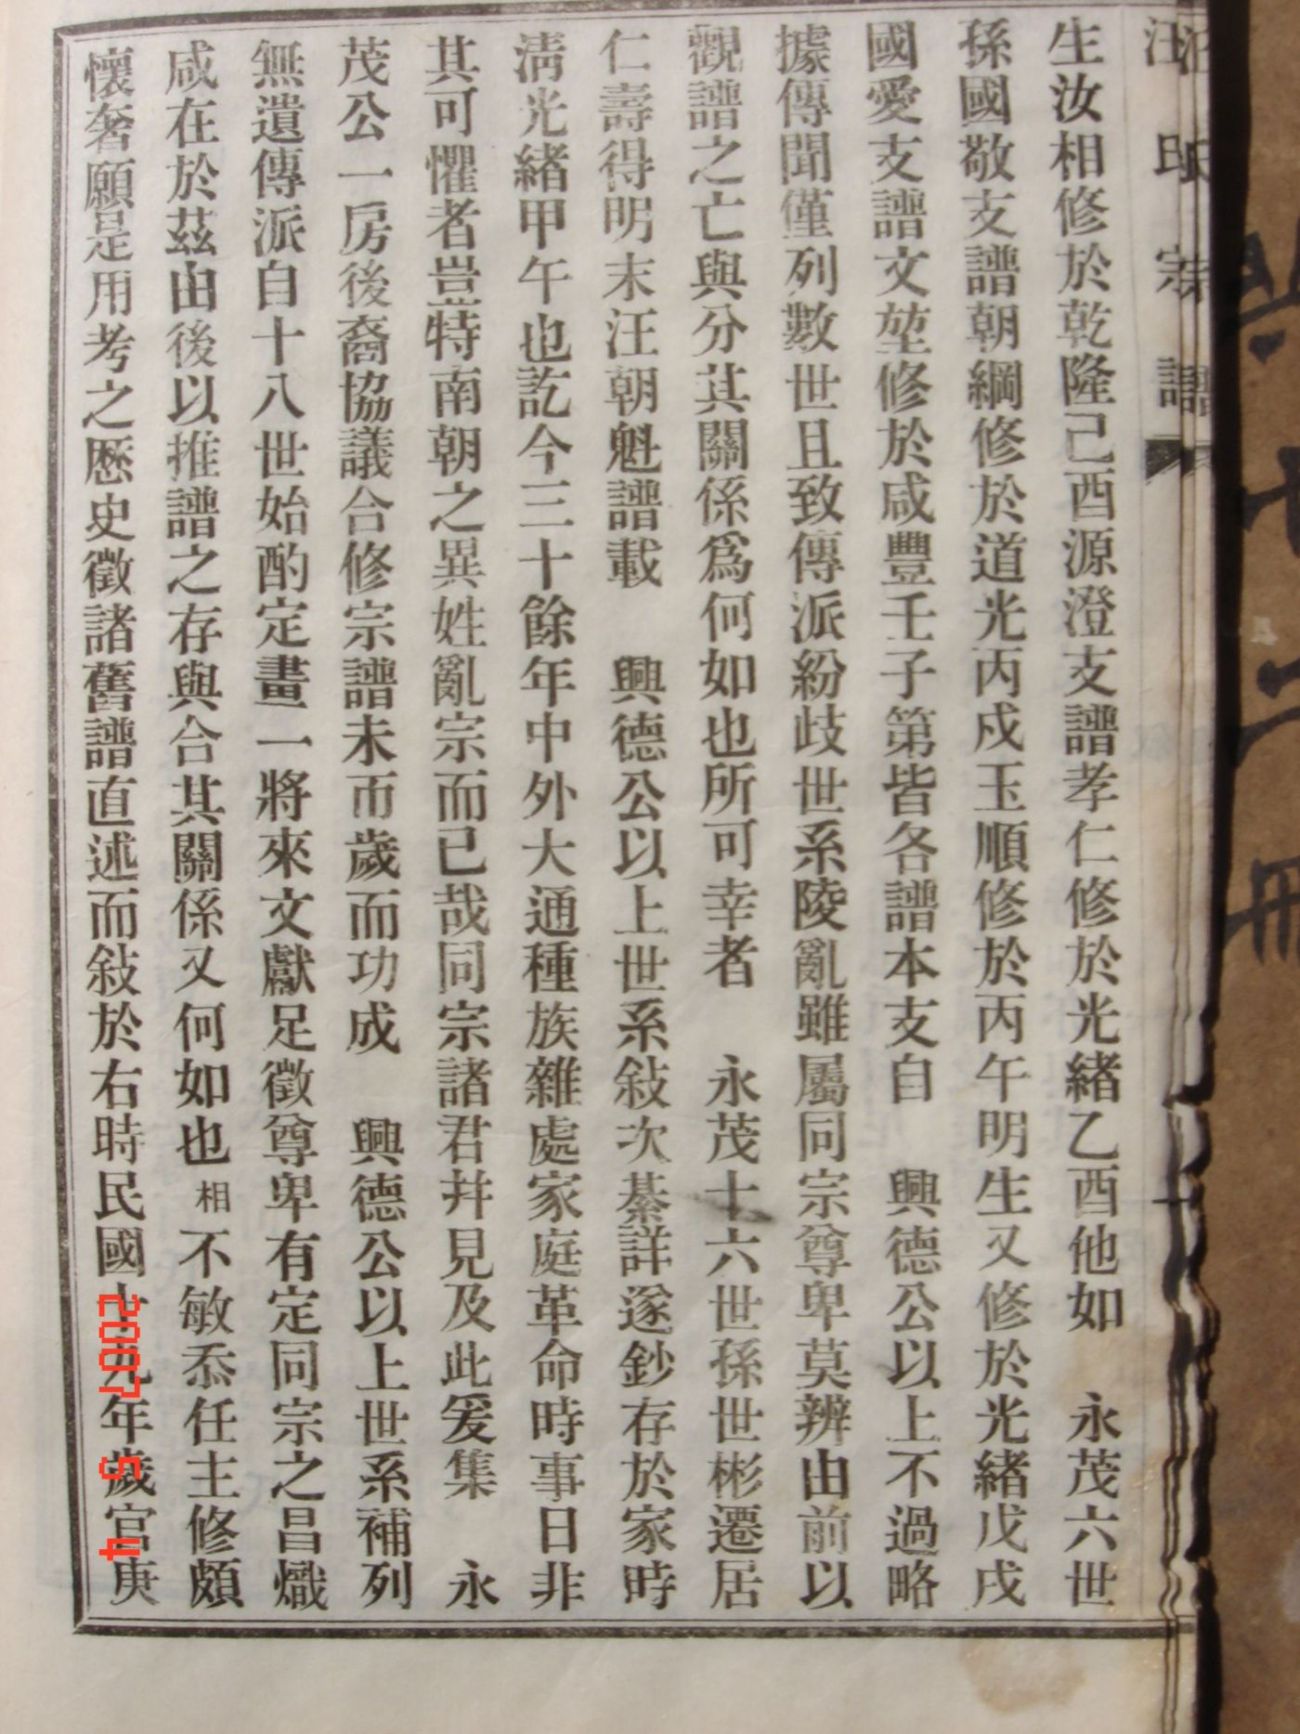 汪氏宗譜
生汝相修於乾隆己酉源澄支譜孝仁修於光緒乙酉他如　永茂六世
孫國敬支譜朝綱修於道光丙戌玉順修於丙午明生又修於光緒戊戌
國愛支譜文堃修於咸豐壬子第皆各譜本支自　興德公以上不過略
據傳聞僅列數世且致傳派紛歧世系陵亂雖屬同宗尊卑莫辨由前以
觀譜之亡與分其關係為何如也所可幸者　永茂十六世孫世彬遷居
仁壽得明末汪朝魁譜載　興德公以上世系敍次綦詳遂鈔存於家時
淸光緒甲午也訖今三十餘年中外大通種族雜處家庭革命時事日非
其可懼者豈特南朝之異姓亂宗而已哉同宗諸君幷見及此爰集　永
茂公一房後裔協議合修宗譜未帀歲而功成　興德公以上世系補列
無遺傳派自十八世始酌定畫一將來文獻足徵尊卑有定同宗之昌熾
咸在於茲由後以推譜之存與合其關係又何如也相不敏忝任主修頗
懷奢願是用考之歷史徵諸舊譜直述而敍於右時民國十九年歲官庚
2007 5 4